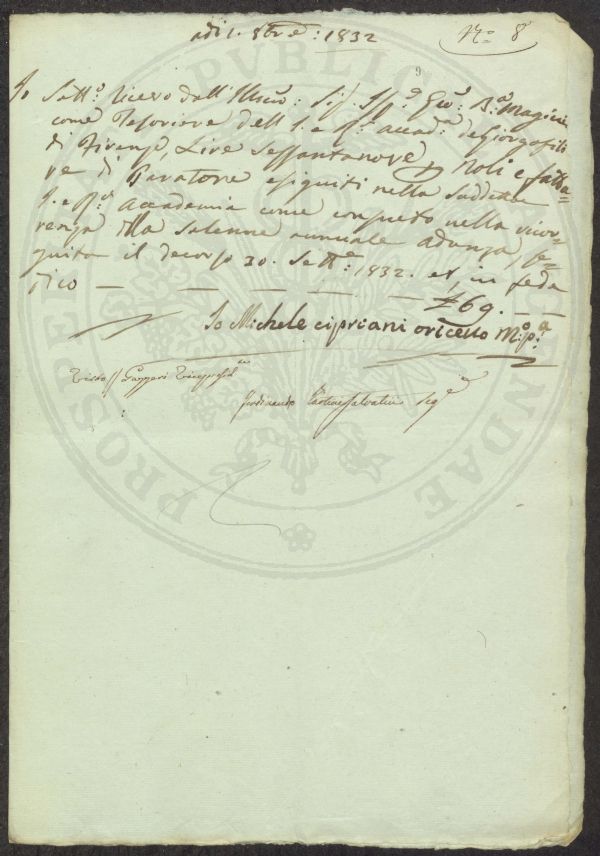 adi 1. 8bre: 1832 No 8
9
Io Sotto. Ricevo dall'Illusmo: Sig. Gio: Ba. Magini
come Tesoriere dell I. e R. Accad. de Georgofili
di Firenze, Lire Sessantanove p Noli e fattu-
re di Paratore esiguiti nella Suddetta
I. e R. Accademia come consueto nella ricor-
renza della Solenne annuale adunza, se-
guita il decorso 30. Sette: 1832. e, in fede
dico £69.
Io Michele cipriani oricello Mo. pa.
Visto
Ferdinando Tartini Salvatici Sego
PROSPERITATI PUBLICAE AUGENDAE